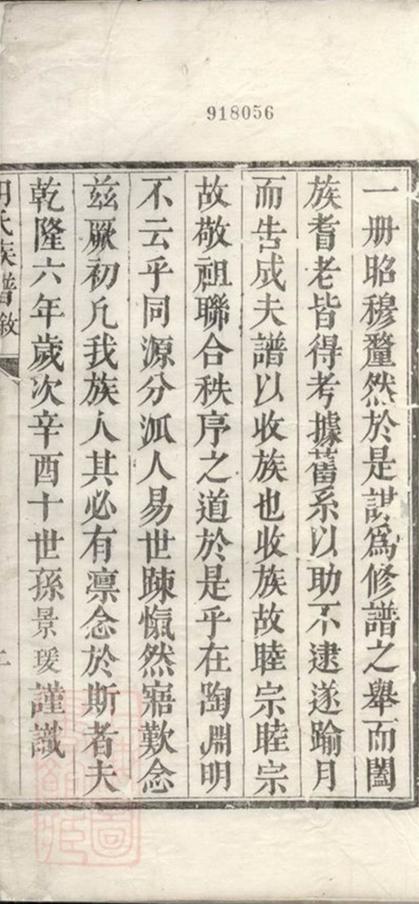 918056
一册昭穆釐然於是謀爲修譜之舉而闔
族耆老皆得考據舊系以助不逮遂踰月
而告成夫譜以收族也收族故睦宗睦宗
故敬祖聯合秩序之道於是乎在陶淵明
不云乎同源分泒人易世踈慨然寤歎念
茲厥初凡我族人其必有凛念於斯者夫
乾隆六年歲次辛酉十世孫景瑗謹識
氏族譜敘